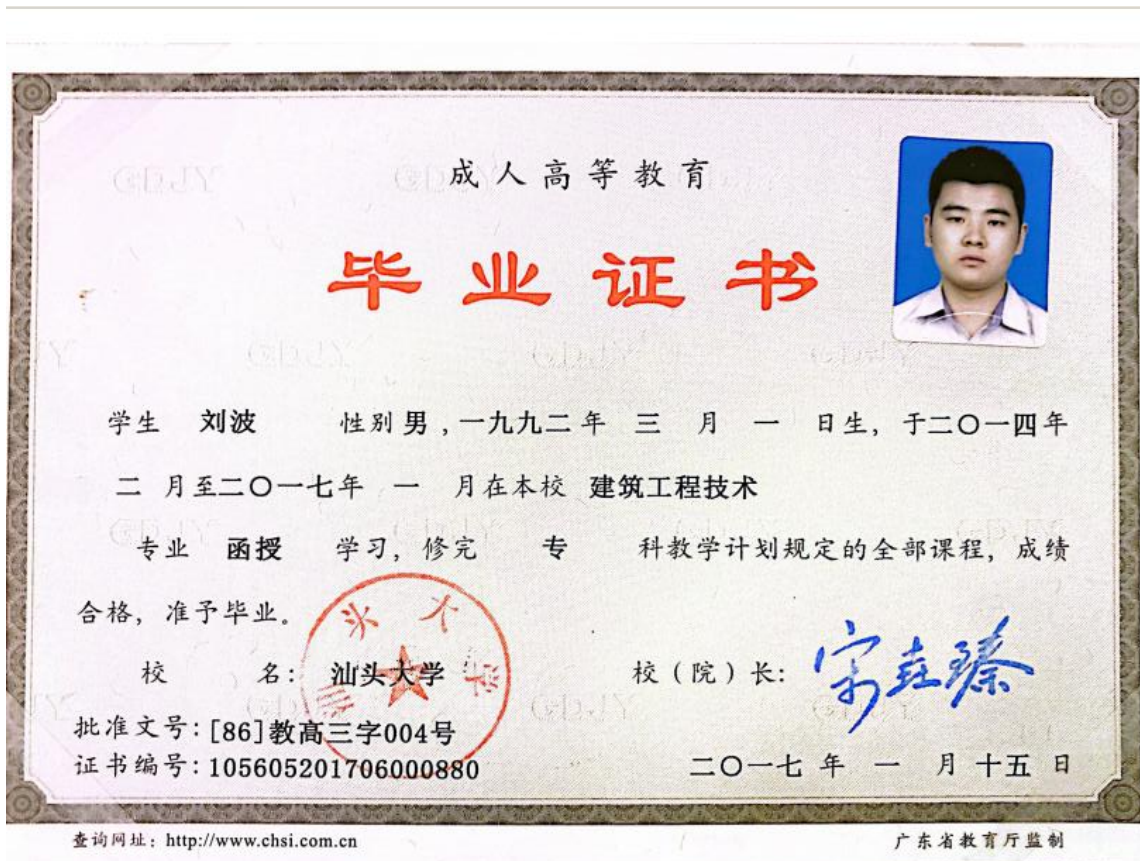 成人高等教育
毕业证书
学生 刘波 性别 男，一九九二年 三 月 一 日生，于二〇一四年
二 月至二〇一七年 一 月在本校 建筑工程技术
专业 函授 学习，修完 专 科教学计划规定的全部课程，成绩
合格，准予毕业。
校 名：汕头大学 校（院）长：
汕头大学
批准文号：[86]教高三字004号
证书编号：105605201706000880 二〇一七 年 一 月 十五 日
查询网址：http://www.chsi.com.cn 广东省教育厅监制